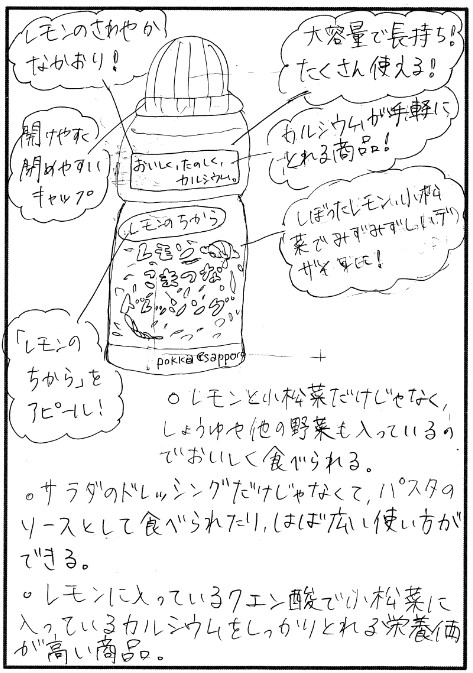 レモンのさわやか
なかおり!
大容量で長持ち!
たくさん使える!
開けやすく
閉めやすい
キャップ
カルシウムが手軽に
とれる商品!
おいしく、たのしく、
カルシウム。
しぼったレモン、小松
菜でみずみずしいデ
ザイン
レモンのちから
レモン
こまつな
ドレッシング
「レモンの
ちから」を
アピール!
pokka sapporo
○レモンと小松菜だけじゃなく、
しょうゆや他の野菜も入っているの
でおいしく食べられる。
○サラダのドレッシングだけじゃなくて、パスタの
ソースとして食べられたり、はば広い使い方が
できる。
○レモンに入っているクエン酸で小松菜に
入っているカルシウムをしっかりとれる栄養価
が高い商品。